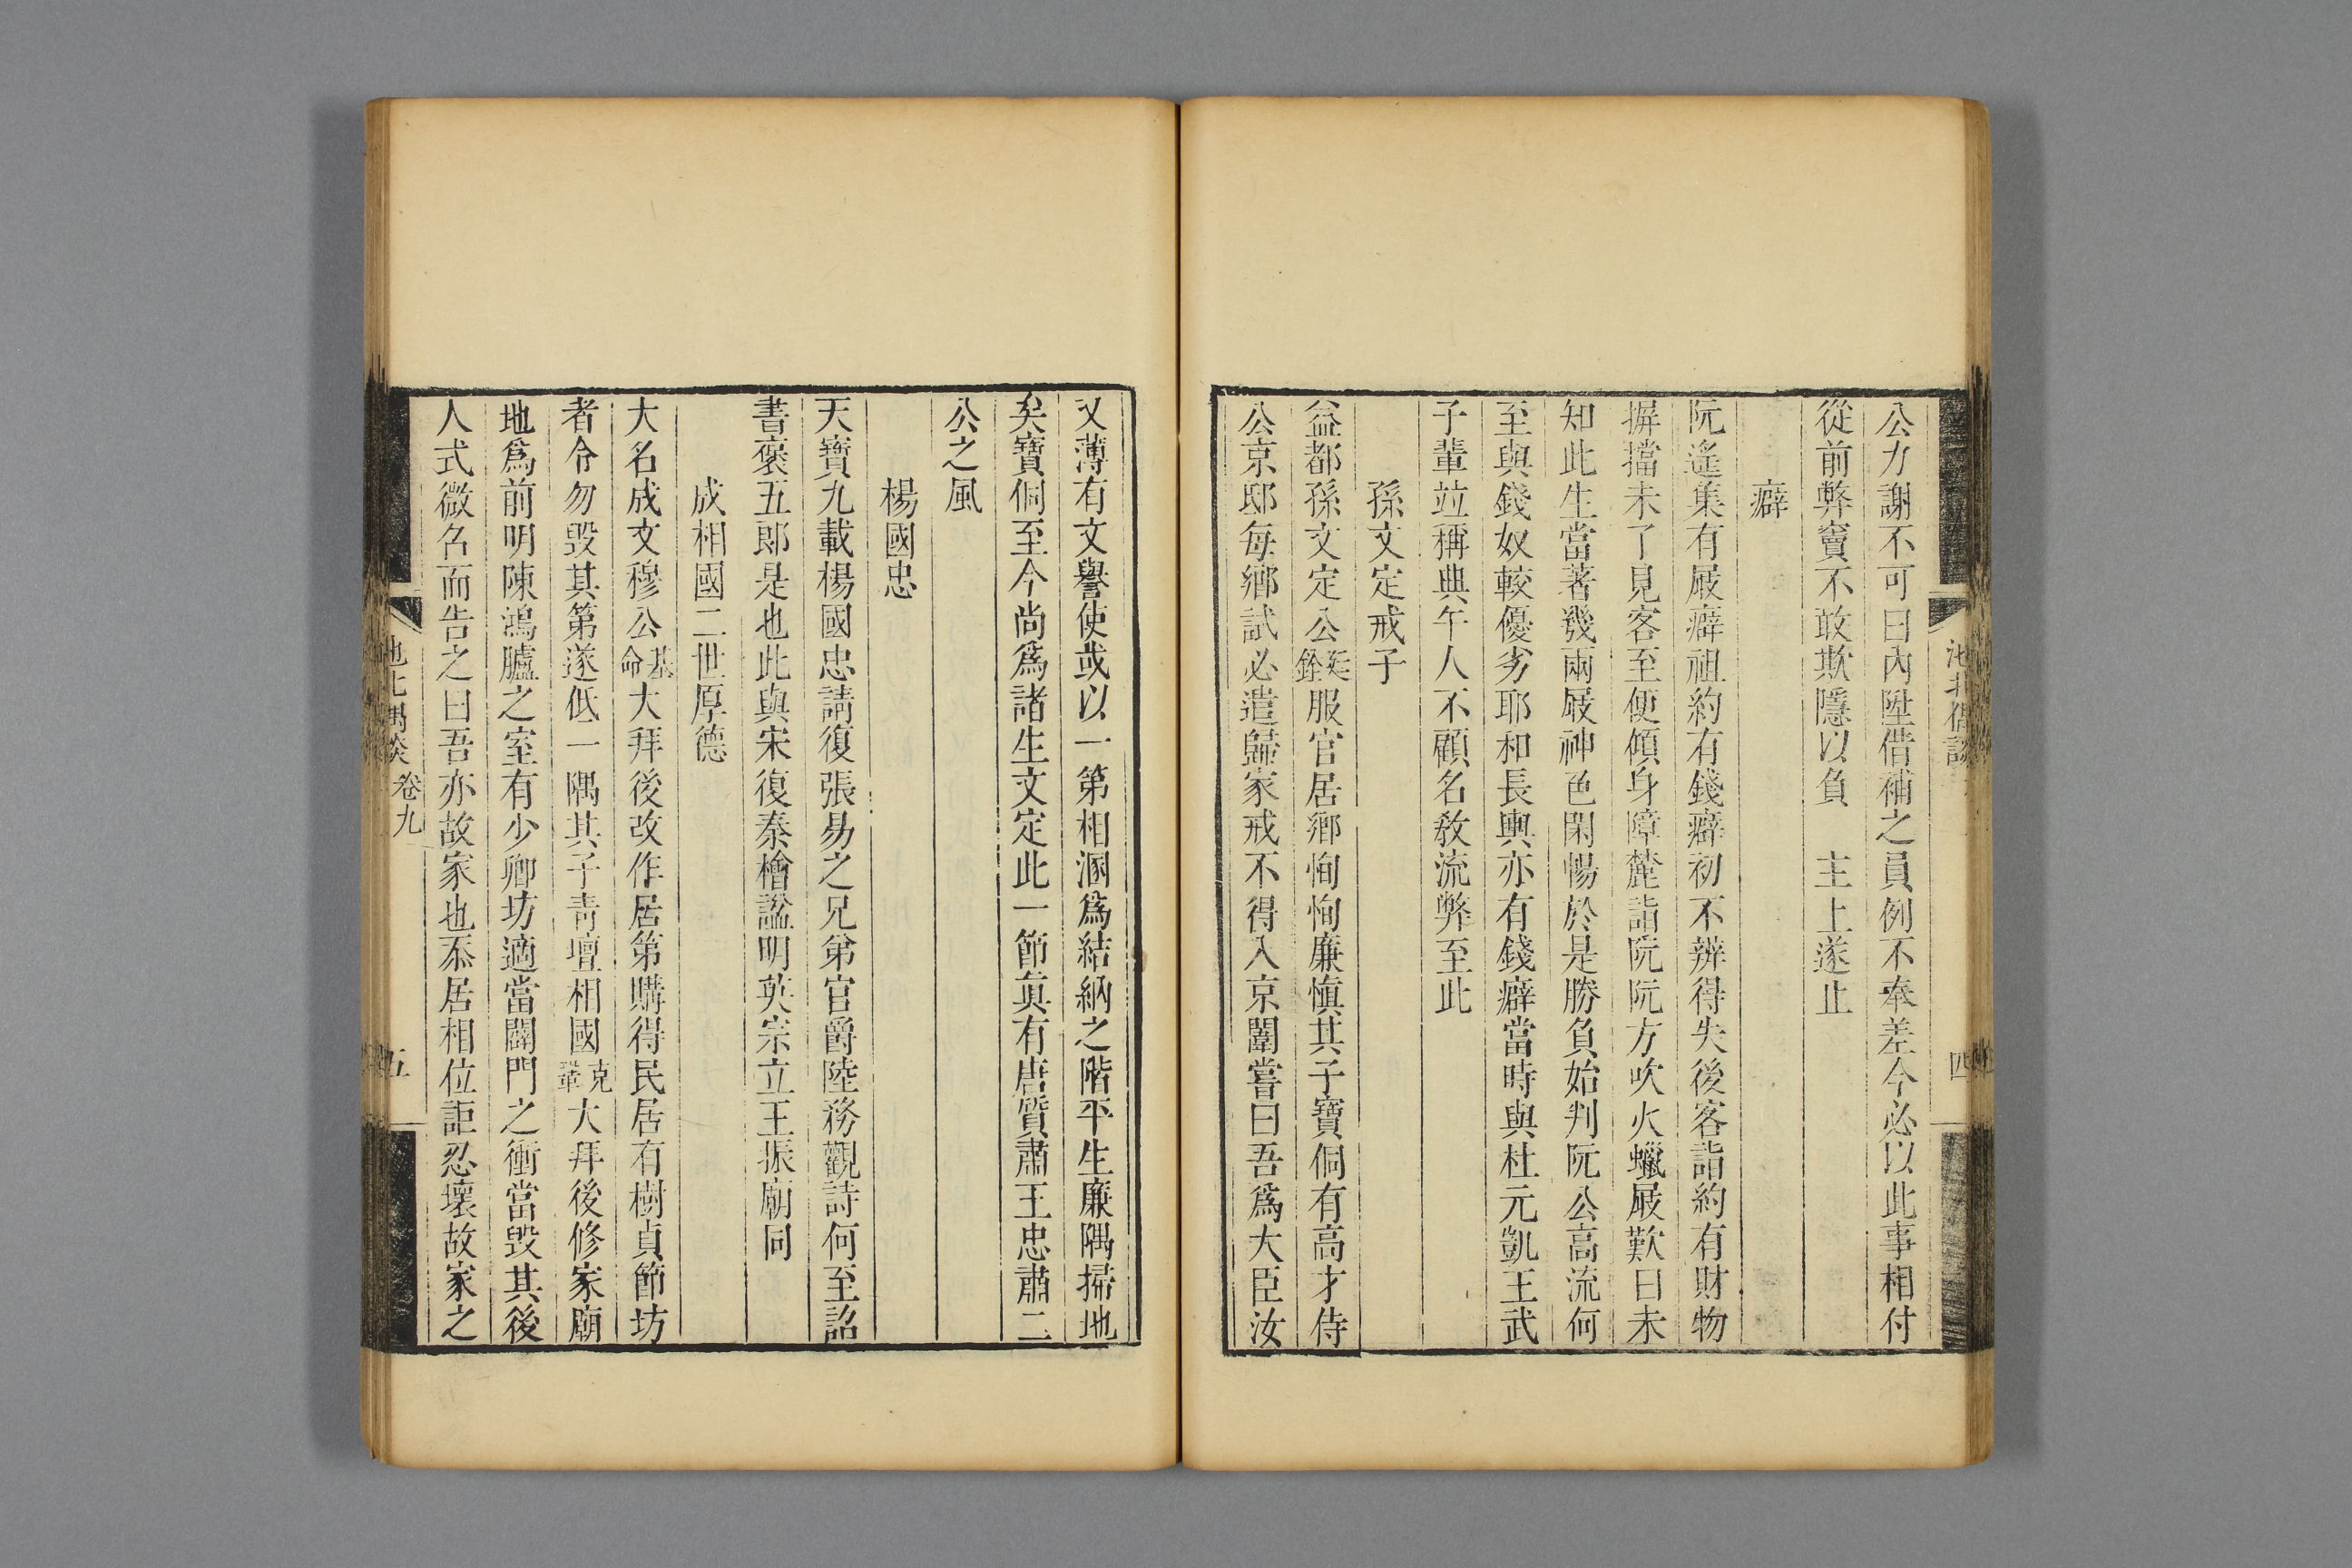 公力謝不可曰內陞借補之員例不奉差今必以此事相付
從前弊竇不敢欺隱以負　主上遂止
癖
阮遙集有屐癖祖約有錢癖初不辨得失後客詣約有財物
摒擋未了見客至便傾身障簏詣阮阮方吹火蠟屐歎曰未
知此生當著幾兩屐神色閑暢於是勝負始判阮公高流何
至與錢奴較優劣耶和長輿亦有錢癖當時與杜元凱王武
子輩竝稱典午人不顧名敎流弊至此
孫文定戒子
益都孫文定公廷銓服官居鄉恂恂廉愼其子寶侗有高才侍
公京邸每鄉試必遣歸家戒不得入京闈嘗曰吾爲大臣汝
又薄有文譽使或以一第相溷爲結納之階平生廉隅掃地
矣寶侗至今尚爲諸生文定此一節眞有唐質肅王忠肅二
公之風
楊國忠
天寶九載楊國忠請復張易之兄弟官爵陸務觀詩何至詔
書襃五郞是也此與宋復秦檜諡明英宗立王振廟同
成相國二世厚德
大名成文穆公基命大拜後改作居第購得民居有樹貞節坊
者令勿毀其第遂低一隅其子靑壇相國克鞏大拜後修家廟
地爲前明陳鴻臚之室有少卿坊適當闢門之衝當毀其後
人式微名而告之曰吾亦故家也忝居相位詎忍壞故家之
池北偶談 四
卷九 五